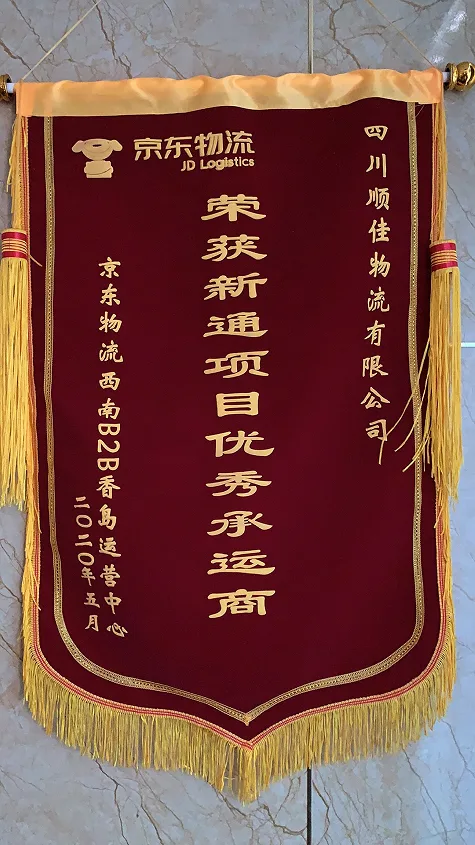 京东物流
JD Logistics
四川顺佳物流有限公司
荣获新通项目优秀承运商
京东物流西南B2B香岛运营中心
二〇二〇年五月